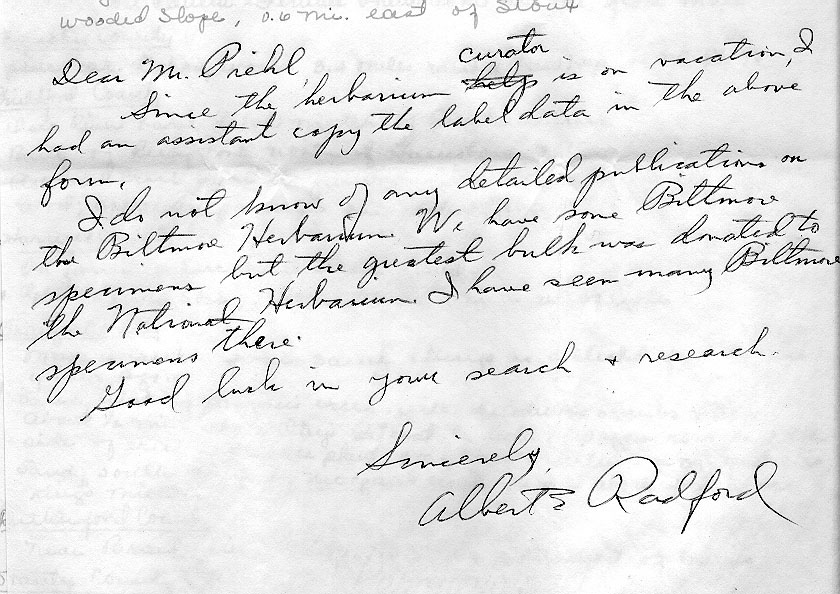 wooded slope, 0.6 mi. east of Stout
Dear Mr. Piehl,
Since the herbarium curator is on vacation, I
had an assistant copy the label data in the above
form.
I do not know of any detailed publication on
the Biltmore Herbarium. We have some Biltmore
specimens but the greatest bulk was donated to
the National Herbarium. I have seen many Biltmore
specimens there.
Good luck in your search + research.
Sincerely,
Albert E Radford